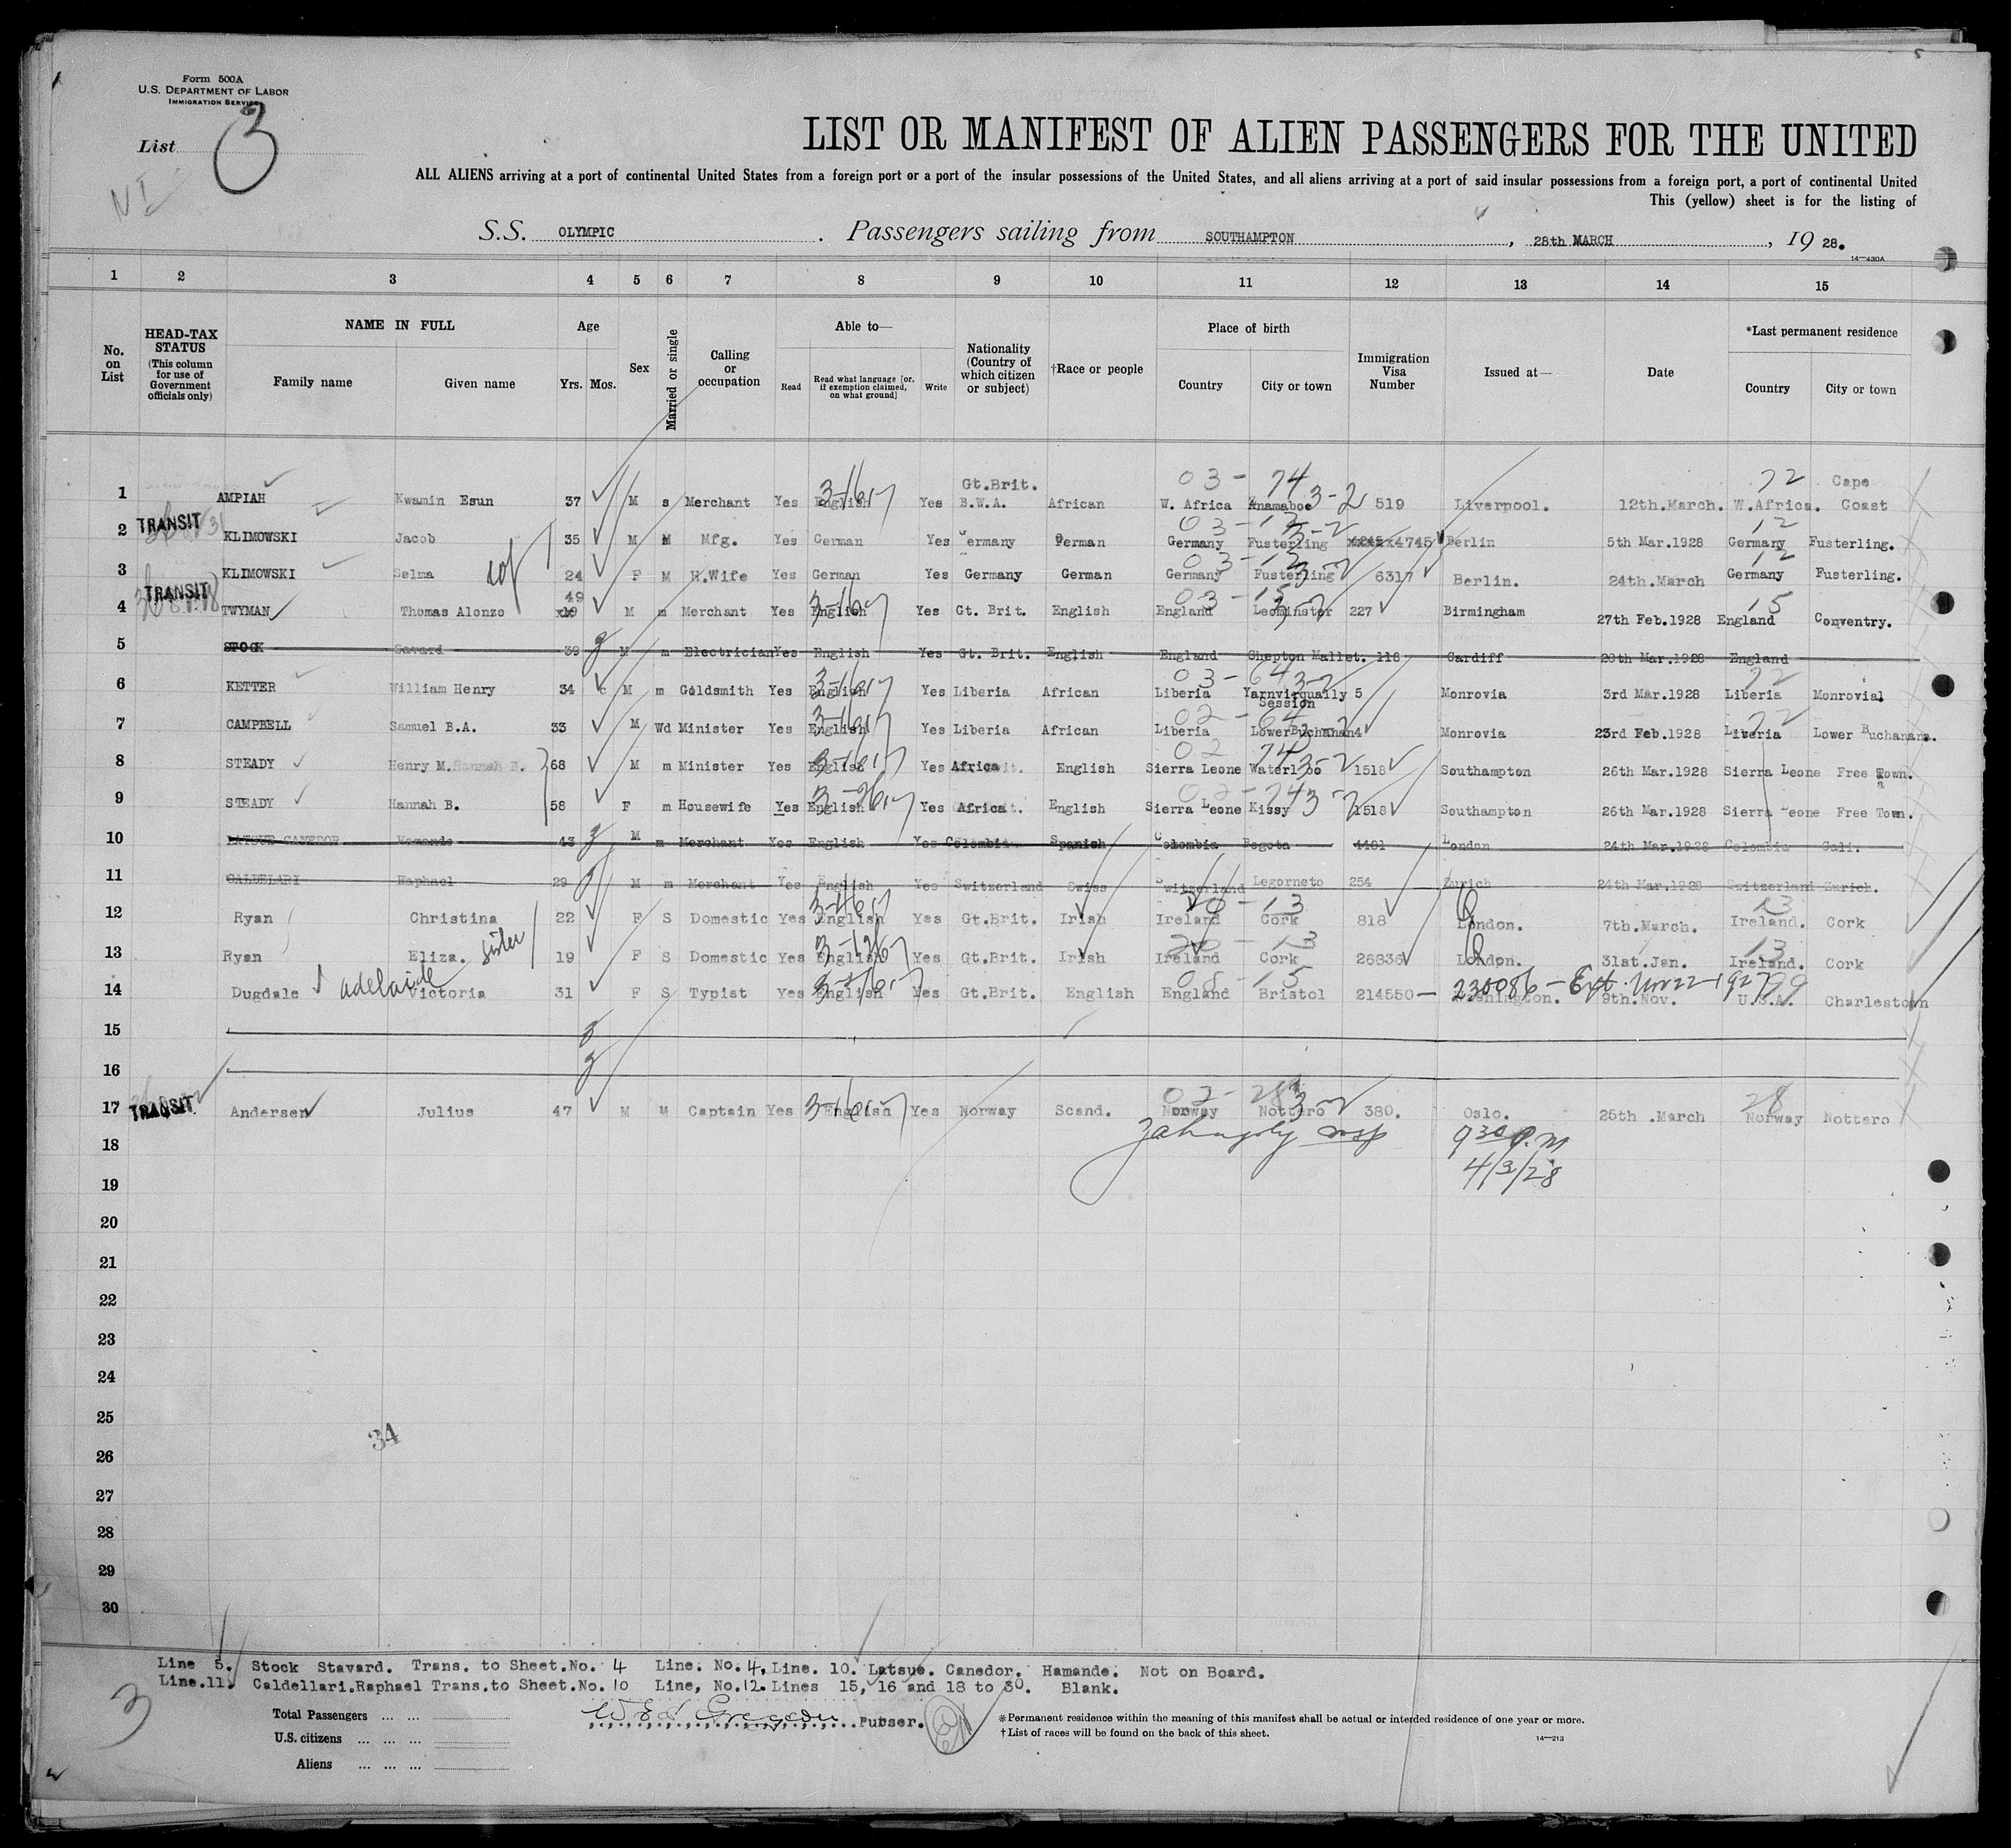 Form 500A
U.S. DEPARTMENT OF LABOR
IMMIGRATION SERVICE
List 3
LIST OR MANIFEST OF ALIEN PASSENGERS FOR THE UNITED
ALL ALIENS arriving at a port of continental United States from a foreign port or a port of the insular possessions of the United States, and all aliens arriving at a port of said insular possessions from a foreign port, a port of continental United
This (yellow) sheet is for the listing of
S.S. OLYMPIC. Passengers sailing from SOUTHAMPTON, 28th MARCH, 19 28.
14—430A
1 2 3 4 5 6 7 8 9 10 11 12 13 14 15
No. on List
HEAD-TAX STATUS (This column for use of Government officials only)
NAME IN FULL
Family name Given name
Age
Yrs. Mos.
Sex
Married or single
Calling or occupation
Able to—
Read Read what language [or, if exemption claimed, on what ground] Write
Nationality (Country of which citizen or subject)
†Race or people
Place of birth
Country City or town
Immigration Visa Number
Issued at—
Date
*Last permanent residence
Country City or town
03 - 74 72
1 AMPIAH Kwamin Esun 37 M s Merchant Yes English Yes Gt.Brit. B.W.A. African W. Africa Anamaboe 3-2 519 Liverpool. 12th.March. W.Africa. Cape Coast
TRANSIT
2 KLIMOWSKI Jacob 35 M M Mfg. Yes German Yes Germany German Germany Fusterling 4745 Berlin 5th Mar.1928 Germany Fusterling.
3 KLIMOWSKI Selma 24 F M H.Wife Yes German Yes Germany German Germany Fusterling 6317 Berlin. 24th.March Germany Fusterling.
TRANSIT
4 TWYMAN Thomas Alonzo 49 M m Merchant Yes English Yes Gt. Brit. English England Leominster 227 Birmingham 27th Feb.1928 England Conventry.
5 STOCK Savard 39 M m Electrician Yes English Yes Gt. Brit. English England Shepton Mallet. 118 Cardiff 28th Mar.1928 England
6 KETTER William Henry 34 M m Goldsmith Yes English Yes Liberia African Liberia Yarnvirqually Session 5 Monrovia 3rd Mar.1928 Liberia Monrovial
7 CAMPBELL Samuel B.A. 33 M Wd Minister Yes English Yes Liberia African Liberia Lower Buchanan 4 Monrovia 23rd Feb.1928 Liberia Lower Buchanans.
8 STEADY Henry M. 68 M m Minister Yes English Yes Africa English Sierra Leone Waterloo 1518 Southampton 26th Mar.1928 Sierra Leone Free Town.
9 STEADY Hannah B. 58 F m Housewife Yes English Yes Africa English Sierra Leone Kissy 1518 Southampton 26th Mar.1928 Sierra Leone Free Town.
10 LATSUE CANEDOR 43 M m Merchant Yes English Yes Colombia Spanish Colombia Bogota London 24th Mar.1928 Colombia Cali.
11 CALDELARI Raphael 29 M m Merchant Yes English Yes Switzerland Swiss Switzerland Legorneto 254 Zurich 24th Mar.1928 Switzerland Zurich.
12 Ryan Christina 22 F S Domestic Yes English Yes Gt.Brit. Irish Ireland Cork 818 London. 7th.March. Ireland. Cork
13 Ryan Eliza. sister 19 F S Domestic Yes English Yes Gt.Brit. Irish Ireland Cork 26836 London. 31st.Jan. Ireland. Cork
14 Dugdale adelaide Victoria 31 F S Typist Yes English Yes Gt.Brit. English England Bristol 214550 — 230086 9th.Nov. U.S.A. Charlestown
15
16
TRANSIT
17 Andersen Julius 47 M M Captain Yes English Yes Norway Scand. Norway Nottero 380. Oslo. 25th .March Norway Nottero
18 9 30 P.M
19 4/3/28
20
21
22
23
24
25
34
26
27
28
29
30
Line 5. Stock Stavard. Trans. to Sheet.No. 4 Line. No.4. Line. 10. Latsue. Canedor. Hamande. Not on Board.
Line.11. Caldellari.Raphael Trans.to Sheet.No. 10 Line, No.12. Lines 15, 16 and 18 to 30. Blank.
3
Total Passengers
U.S. citizens
Aliens
Purser.
*Permanent residence within the meaning of this manifest shall be actual or intended residence of one year or more.
†List of races will be found on the back of this sheet.
14—213